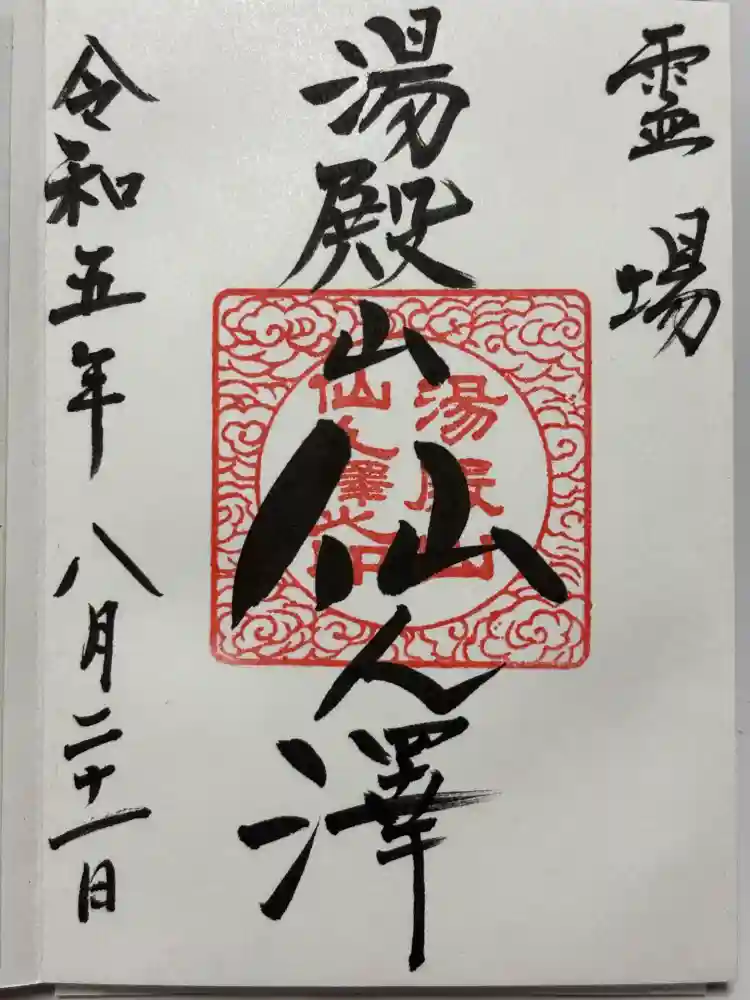 霊場
湯殿山仙人澤
湯殿山
仙人澤之印
令和五年 八月二十一日